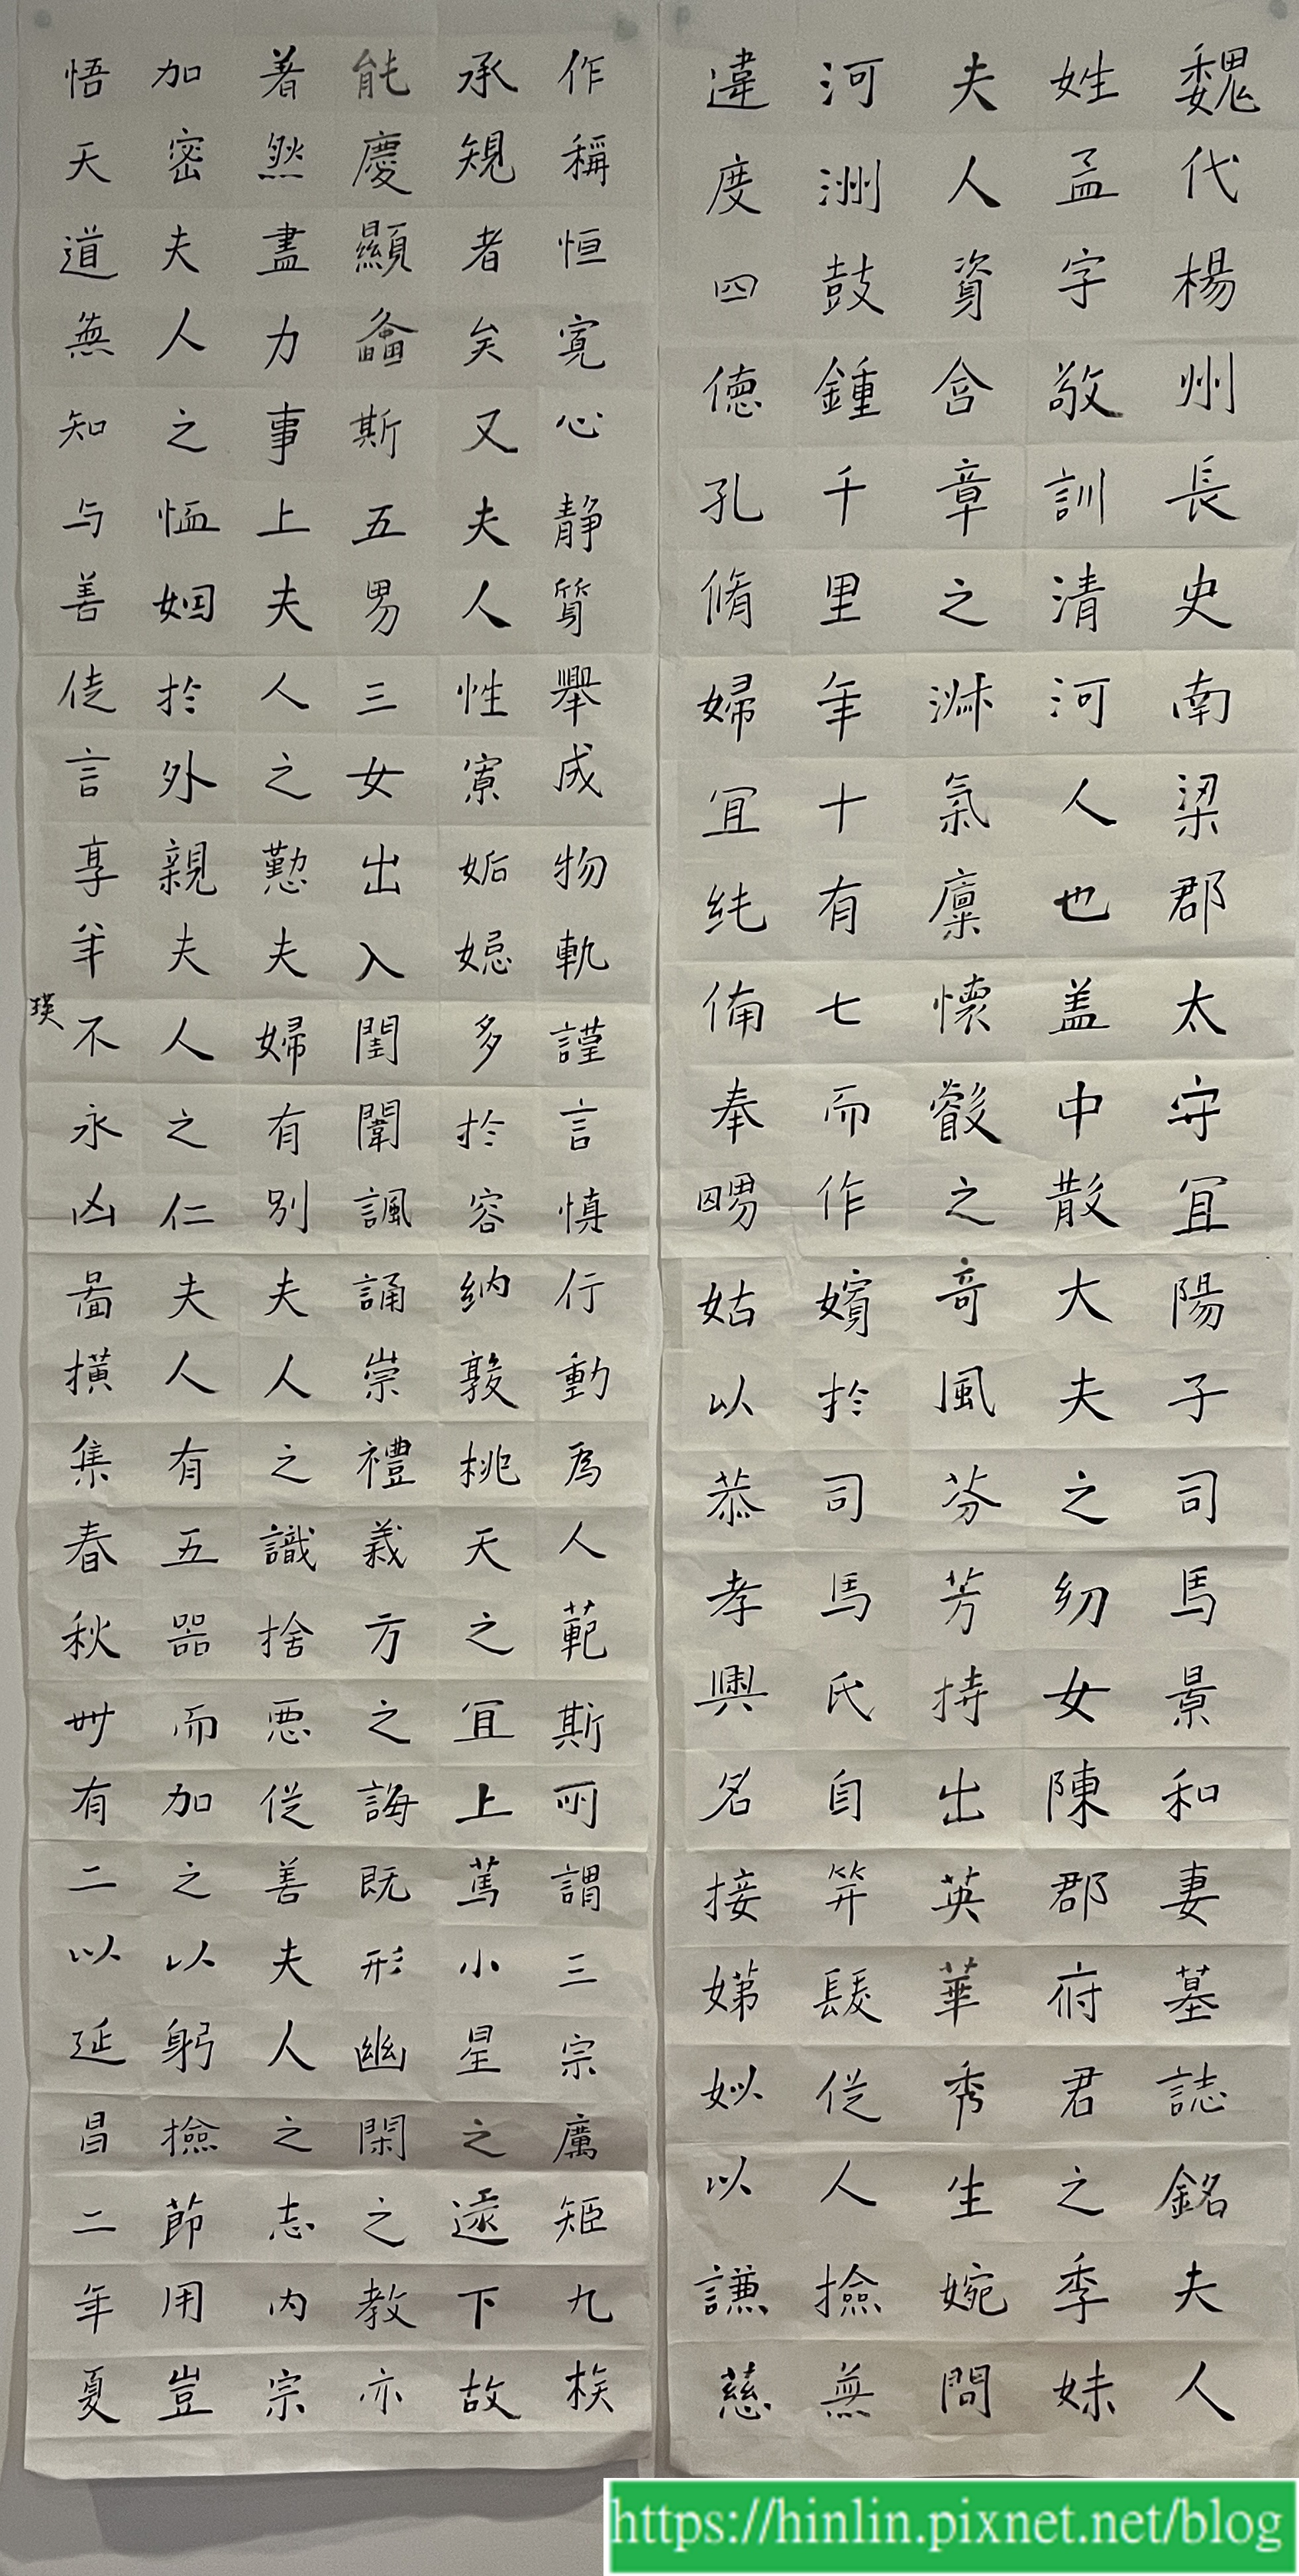 魏代楊州長史南梁郡太守宜陽子司馬景和妻墓誌銘夫人
姓孟字敬訓清河人也盖中散大夫之幼女陳郡府君之季妹
夫人資含章之淋氣稟懷叡之竒風芬芳持出英華秀生婉問
河洲鼓鍾千里年十有七而作嬪於司馬氏自笄髮從人撿無
違度四德孔脩婦宜純備奉舅姑以恭孝興名接娣姒以謙慈
作稱恒寬心静質舉成物軌謹言慎行動為人範斯所謂三宗厲矩九族
承規者矣又夫人性寡妬媢多於容納敦桃夭之宜上篤小星之遝下故
能慶顯螽斯五男三女出入閨闈諷誦崇禮義方之誨既形幽閑之教亦
著然盡力事上夫人之懃夫婦有別夫人之識捨惡從善夫人之志内宗
加密夫人之恤姻於外親夫人之仁夫人有五器而加之以躬撿節用豈
悟天道無知与善徒言享年不永凶啚横集春秋卌有二以延昌二年夏
瑛
https://hinlin.pixnet.net/blog